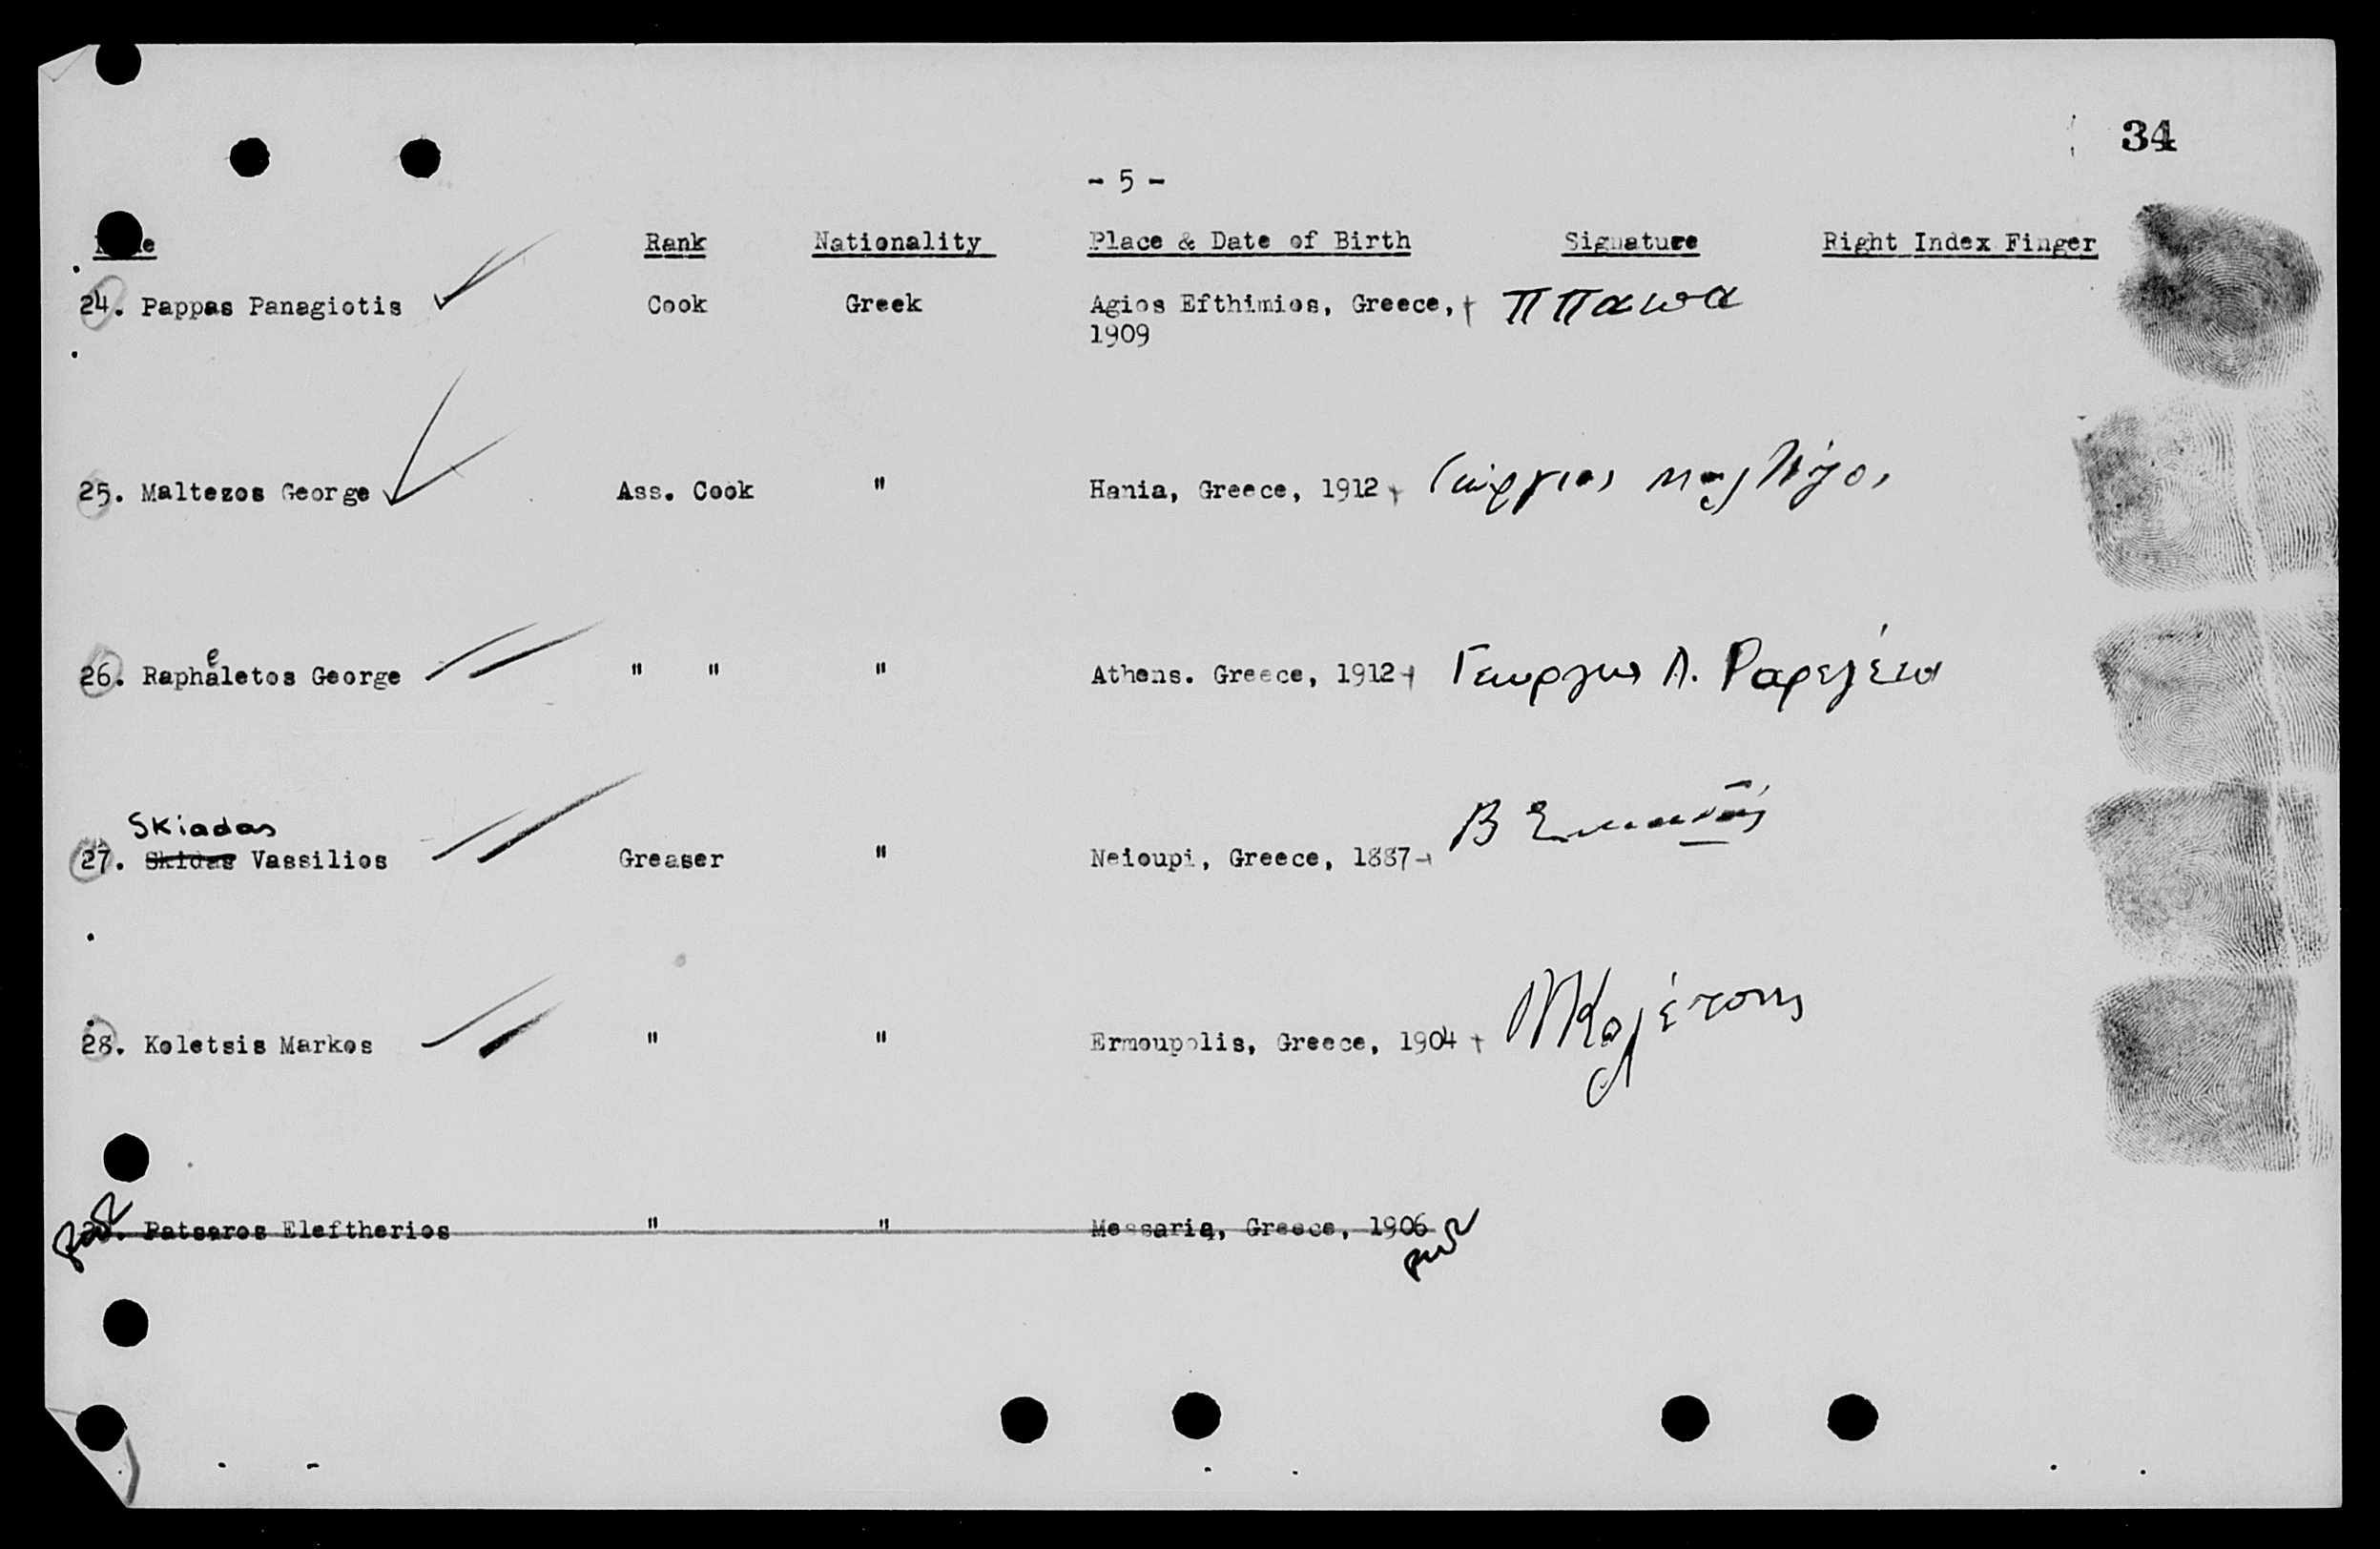 34
- 5 -
Rank Nationality Place & Date of Birth Signature Right Index Finger
24. Pappas Panagiotis Cook Greek Agios Efthimios, Greece, Π Παπα
1909
25. Maltezos George Ass. Cook " Hania, Greece, 1912 Γεώργιος
e
26. Raphaletos George " " " Athens. Greece, 1912 Γεωργιος Λ.
Skiadas
27. Skidas Vassilios Greaser " Neioupi, Greece, 1887 Β
28. Koletsis Markos " " Ermoupolis, Greece, 1904 ΜΚολέτσης
Patseros Eleftherios " " Messaria, Greece, 1906